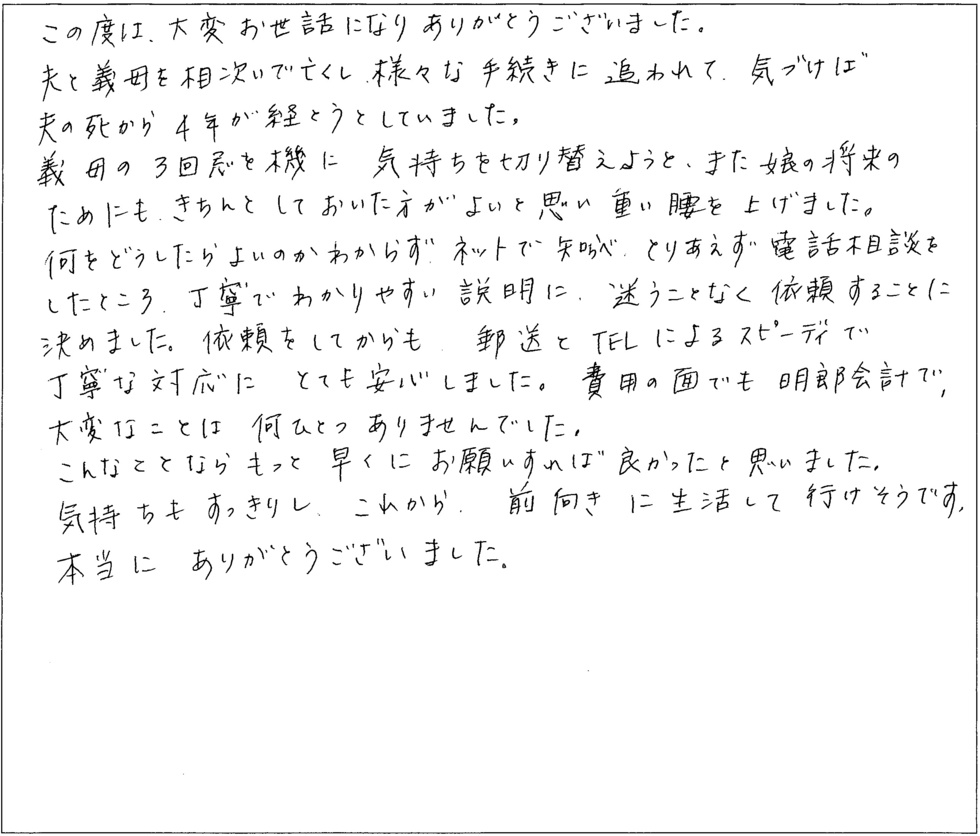 この度は、大変お世話になりありがとうございました。
夫と義母を相次いで亡くし、様々な手続きに追われて、気づけば
夫の死から4年が経とうとしていました。
義母の3回忌を機に 気持ちを切り替えようと、また娘の将来の
ためにも、きちんとしておいた方がよいと思い重い腰を上げました。
何をどうしたらよいのかわからず、ネットで 、とりあえず電話相談を
したところ、丁寧でわかりやすい説明に、迷うことなく依頼することに
決めました。依頼をしてからも、郵送とTELによるスピーディで
丁寧な対応に とても安心しました。費用の面でも明郎会計で、
大変なことは何ひとつありませんでした。
こんなことならもっと早くにお願いすれば良かったと思いました。
気持ちもすっきりし、これから、前向きに生活して行けそうです。
本当に ありがとうございました。